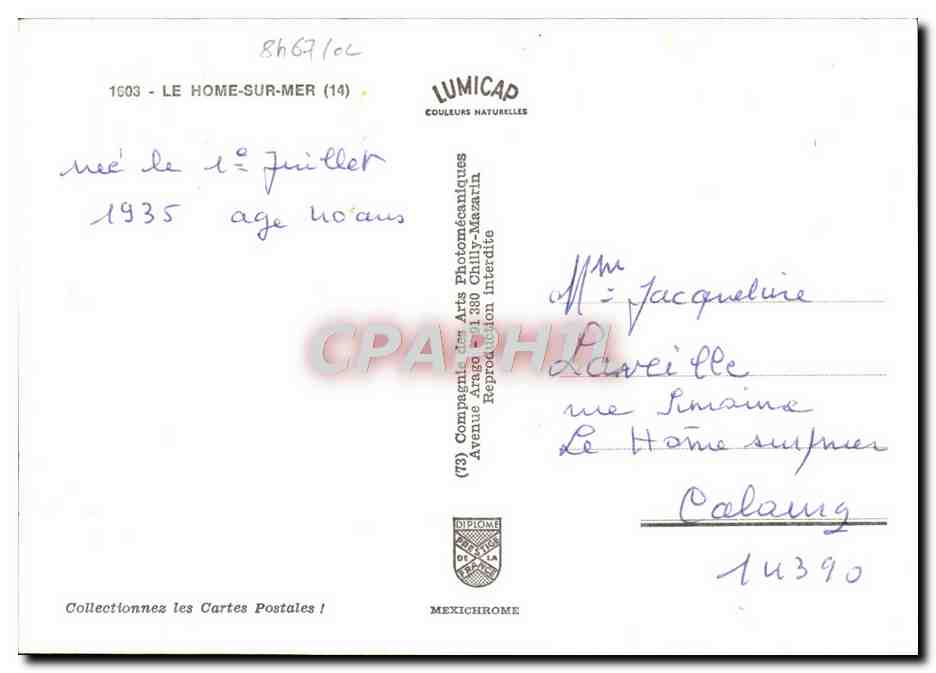 8h67/oc
1603 - LE HOME-SUR-MER (14)
LUMICAP
COULEURS NATURELLES
née le 1e Juillet
1935 age 40 ans
(73) Compagnie des Arts Photomécaniques
Avenue Arago - 91 380 Chilly-Mazarin
Reproduction interdite
CPAPHIL
Mme Jacqueline
Laveille
rue
Le Hôme sur/mer
Cabourg
14390
DIPLOME
PRESTIGE
DE LA
FRANCE
Collectionnez les Cartes Postales !
MEXICHROME